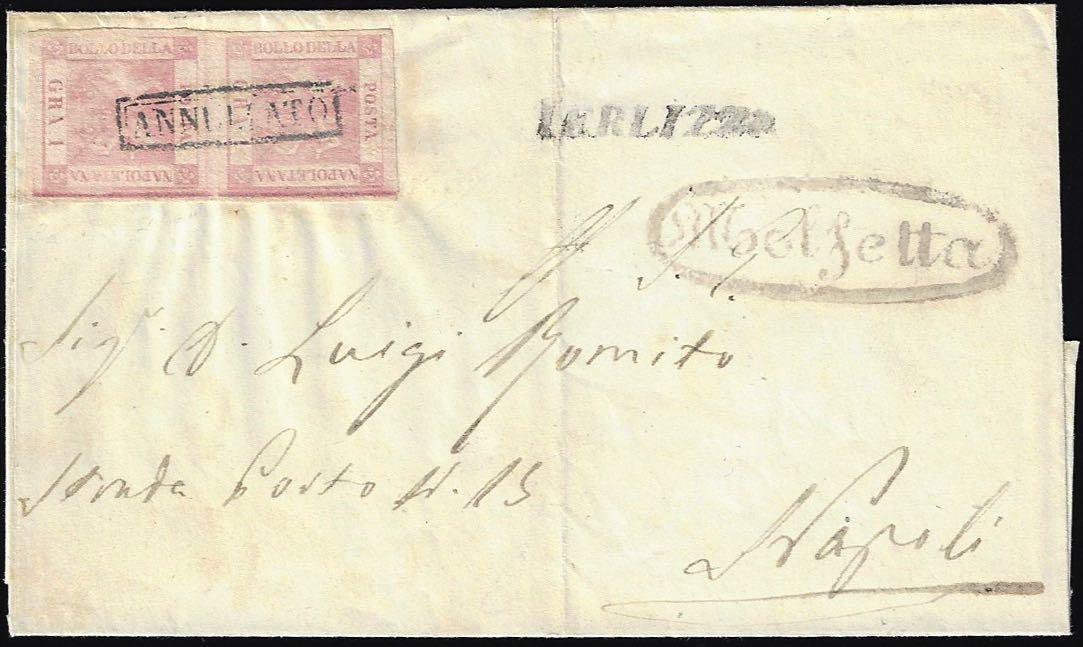 BOLLO DELLA BOLLO DELLA
GRA 1 POSTA
NAPOLETANA NAPOLETANA
ANNULLATO
TERLIZZO
Molfetta
Sig.r D. Luigi Romito
Strada Porto N. 15
Napoli